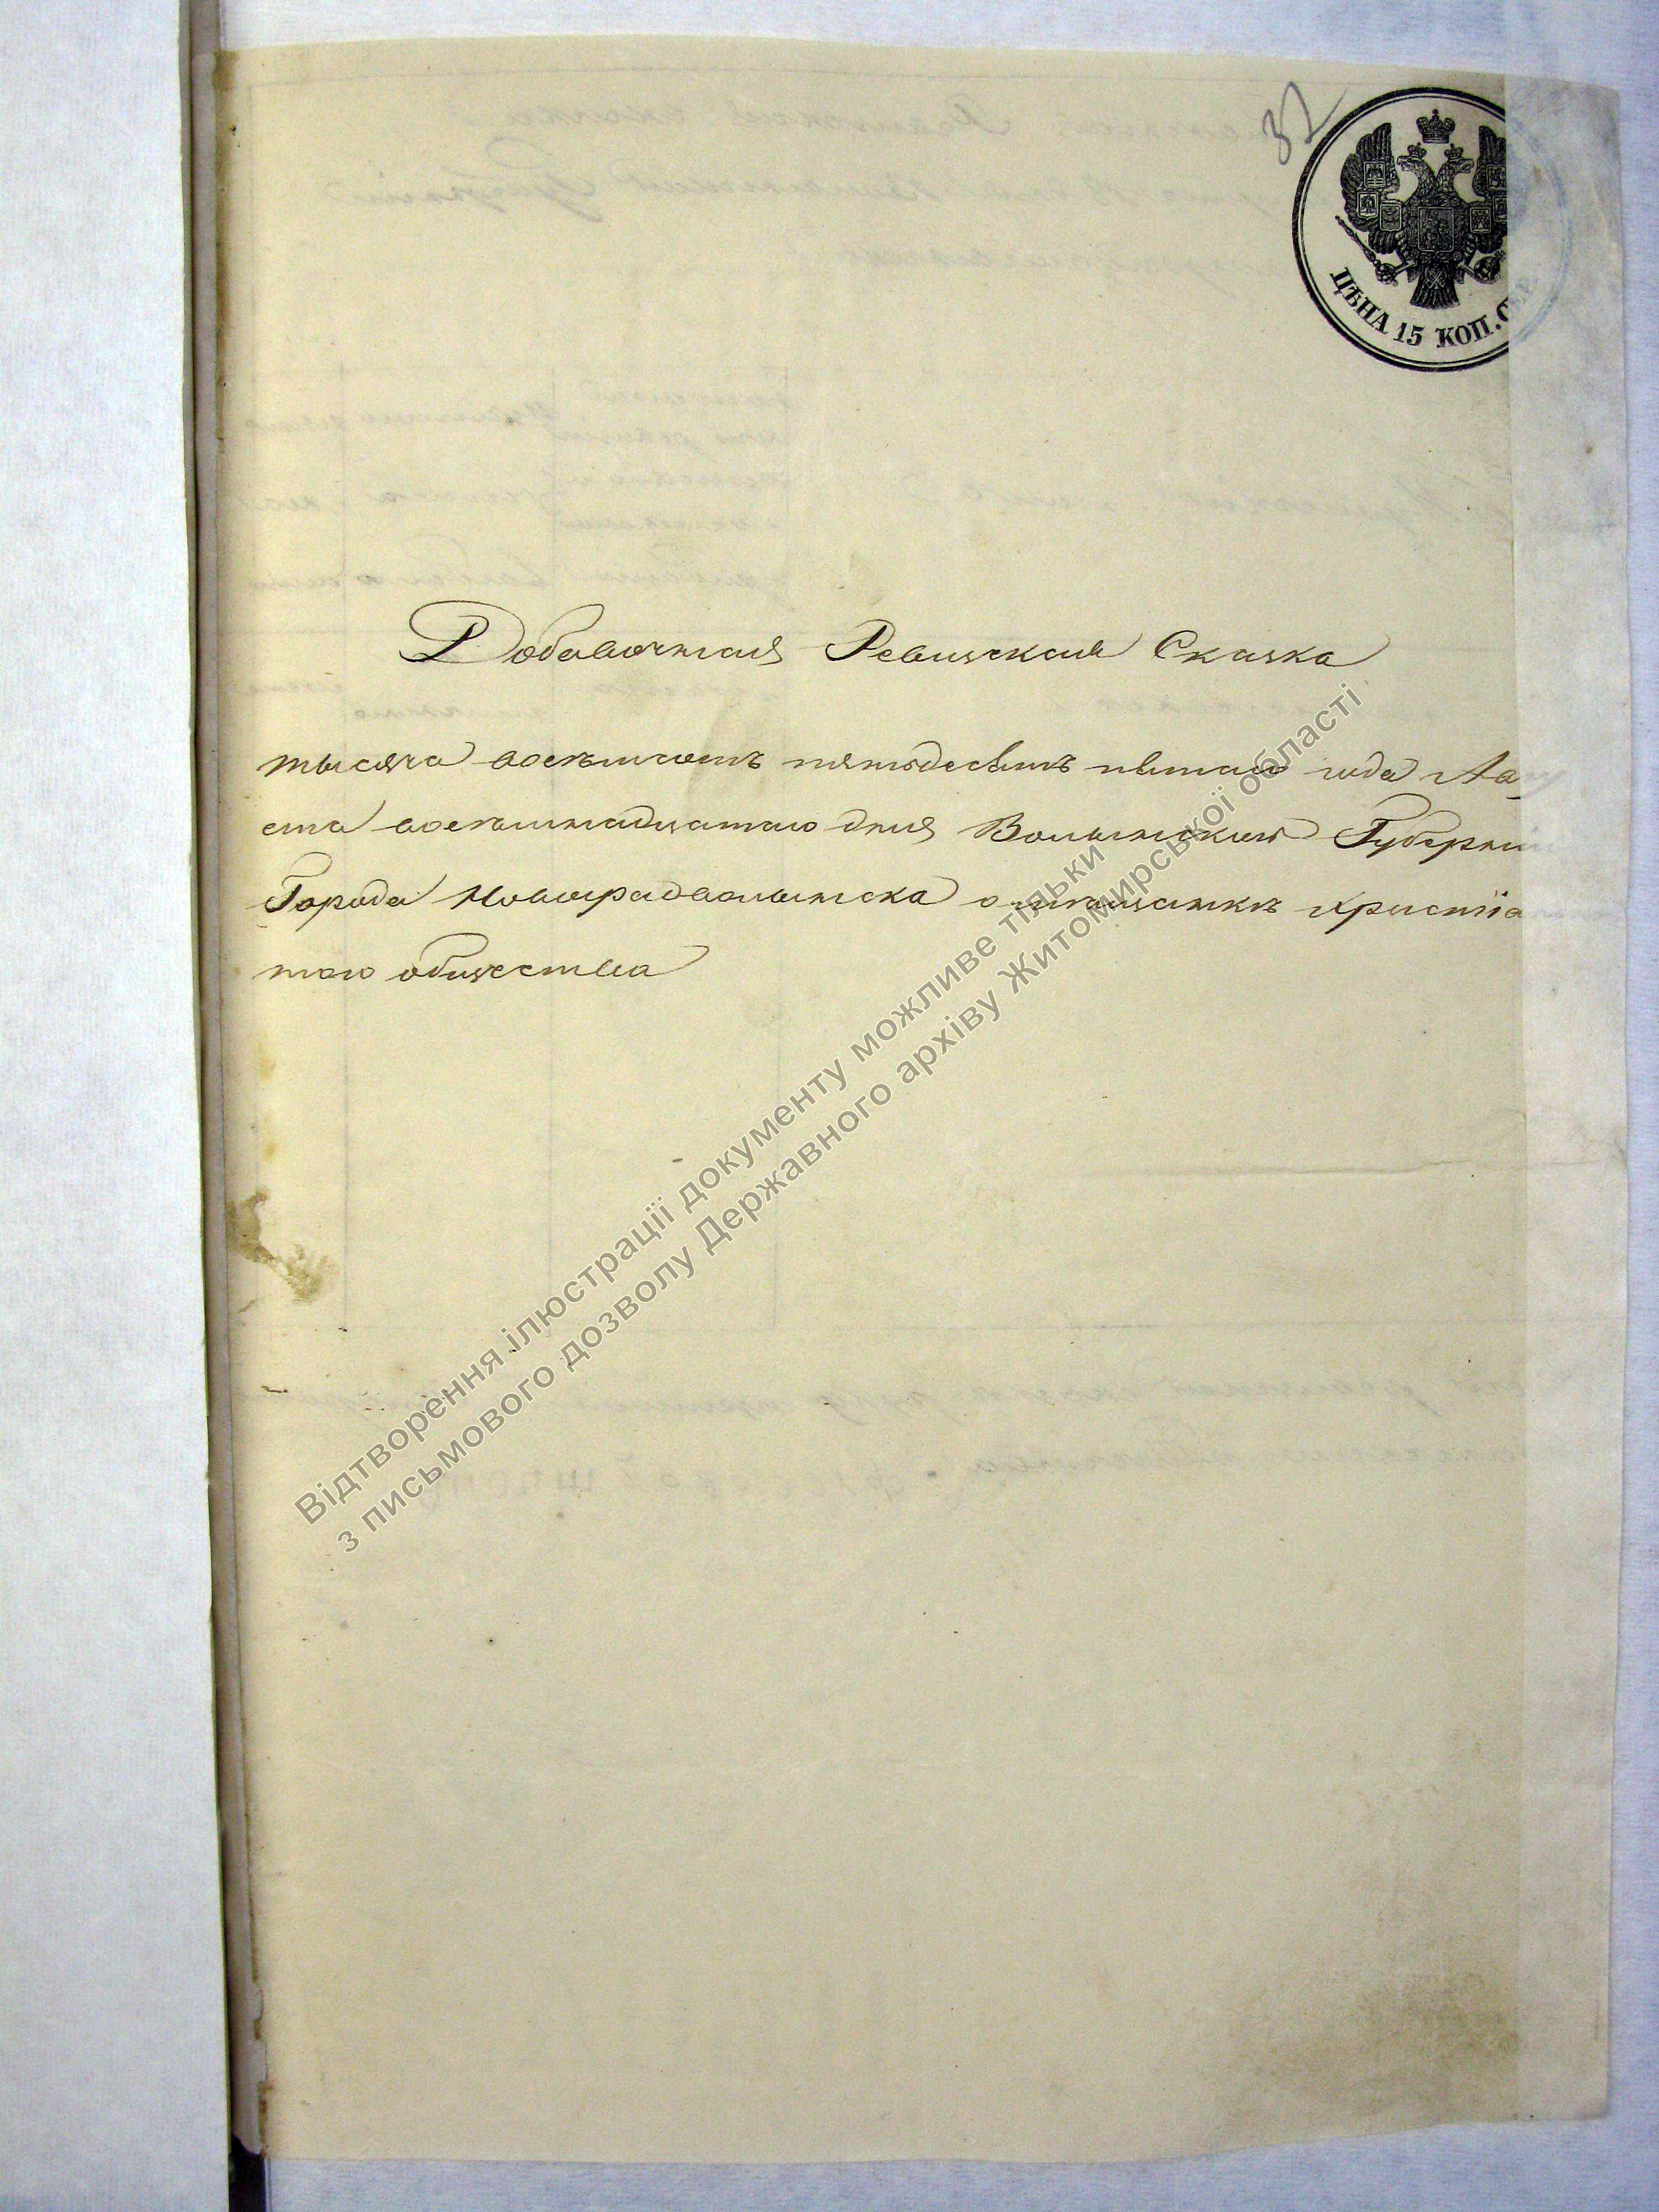 32
ЦѢНА 15 КОП. СЕР.
Добавочная Ревизская Сказка
тысяча восемьсотъ пятьдесятъ пятаго года Авгу
ста восемнадцатаго дня Волынской Губерніи
Города Новоградволынска о мещанахъ христіа
наго общества
Відтворення ілюстрації документу можливе тільки
з письмового дозволу Державного архіву Житомирської області